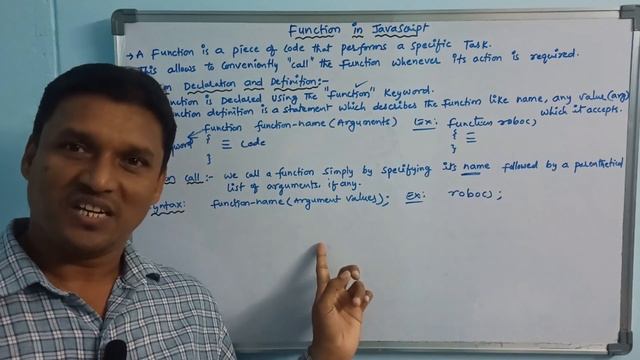 Function in Javascript
→ A Function is a piece of code that performs a specific Task.
This allows to conveniently "call" the function whenever its action is required.
Declaration and Definition:-
Function is Declared Using the "Function" Keyword.
function definition is a statement which describes the function like name, any value(arg)
which it accepts.
function function-name(Arguments) Ex: function robo()
{ ☰ code { ☰
} }
call:- we call a function simply by specifying its name followed by a parenthetical
list of arguments, if any.
Syntax: function-name(Argument values); Ex: robo();